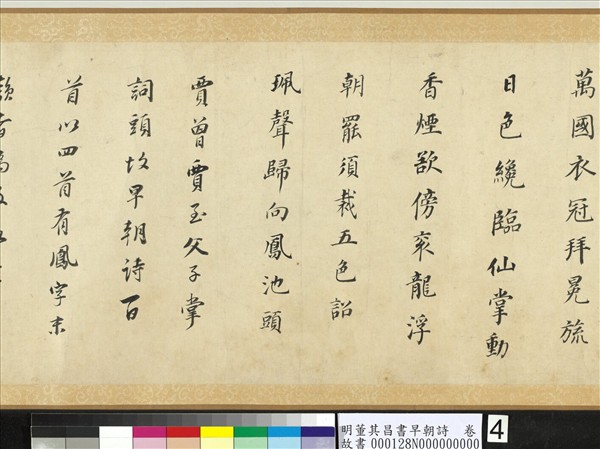 萬國衣冠拜冕旒
日色纔臨仙掌動
香煙欲傍衮龍浮
朝罷須裁五色詔
珮聲歸向鳳池頭
賈曾賈至父子掌
詞頭故早朝詩百
首以四首有鳳字末
明董其昌書早朝詩 卷
故書 000128N000000000
4